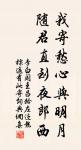 我寄愁心與明月
隨君直到夜郎西
李白聞王昌齡左遷龍
標遙有此寄詞典網集